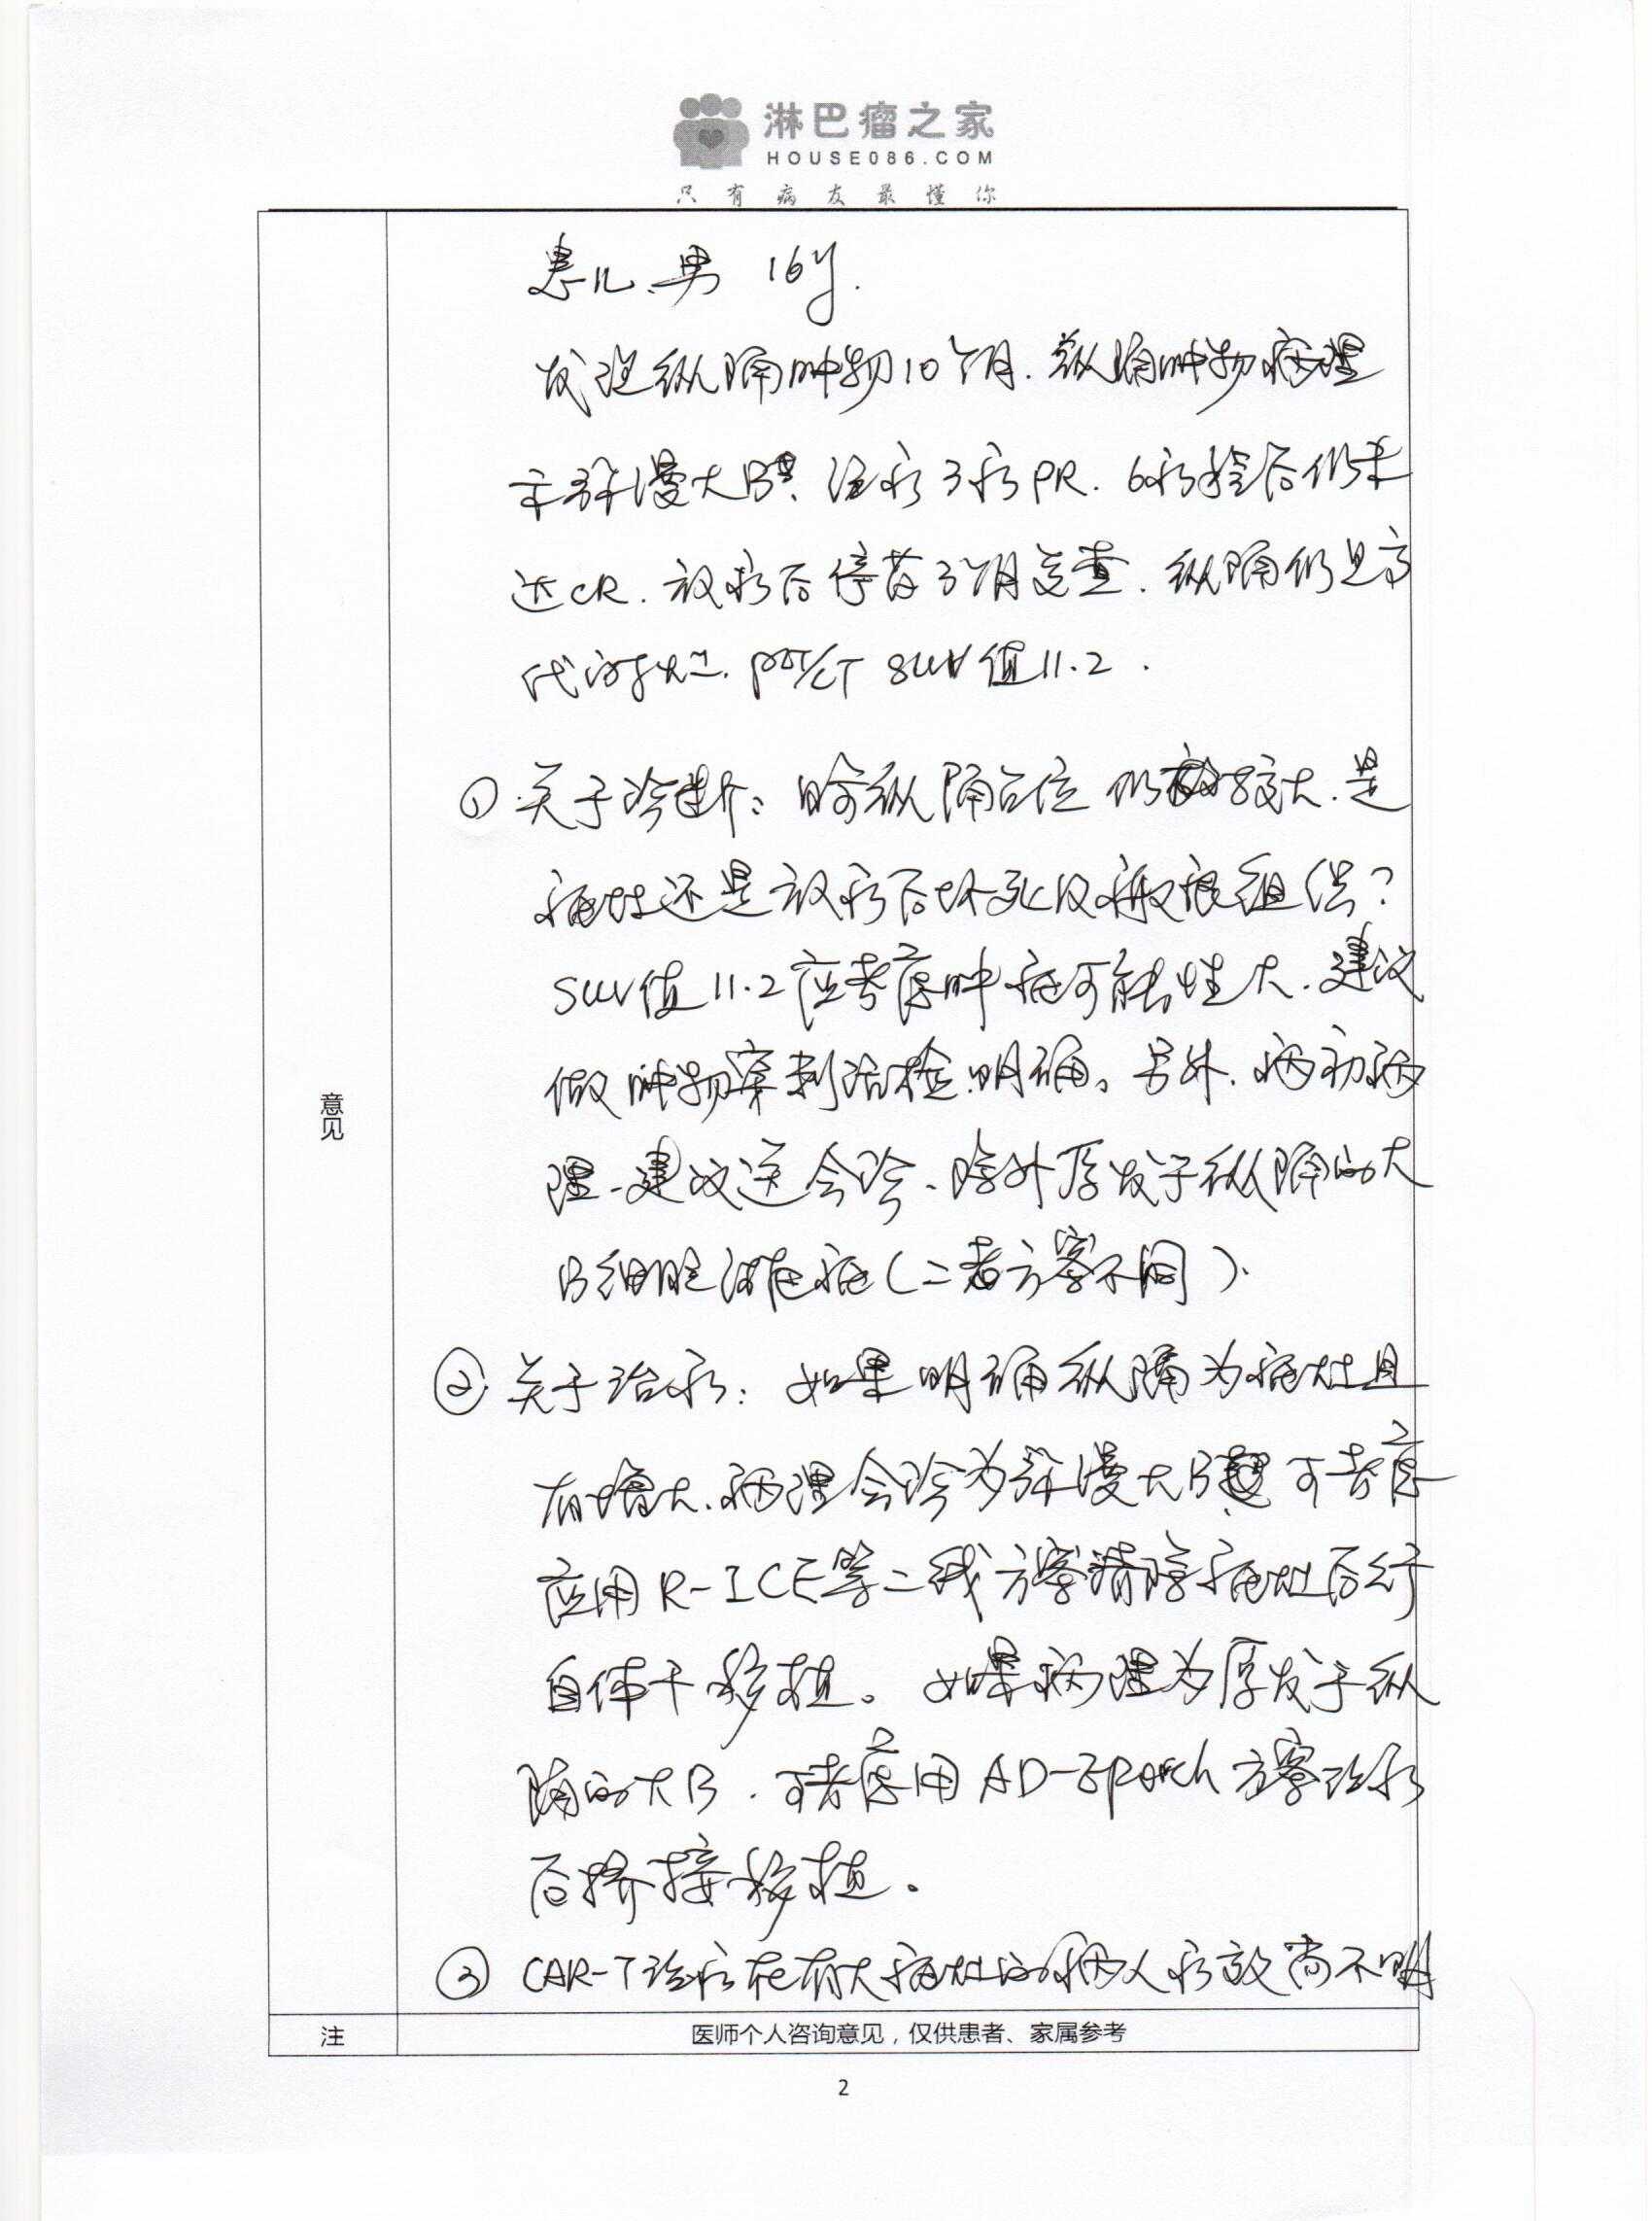 淋巴瘤之家
HOUSE086.COM
只有病友最懂你
患儿、男 16y.
发现纵隔肿物10个月. 纵隔肿物病理
示弥漫大B. 治疗3疗PR. 6疗程后仍未
达CR. 放疗后停药3个月复查. 纵隔仍是高
代谢灶. PET/CT SUV值11.2.
① 关于诊断: 纵隔占位仍较大. 是
瘤灶还是放疗后坏死及瘢痕组织?
SUV值11.2应考虑肿瘤可能性大. 建议
做肿物穿刺活检明确。另外. 病初病
理. 建议送会诊、除外原发于纵隔的大
B细胞淋巴瘤(二者方案不同).
② 关于治疗: 如果明确纵隔为瘤灶且
有增大. 病理会诊为弥漫大B 可考虑
应用R-ICE等二线方案清除瘤灶后行
自体干移植。如果病理为原发于纵
隔的大B. 可考虑用AD-Epoch方案治疗
后桥接移植。
③ CAR-T治疗在有大瘤灶的病人疗效尚不明
意见
注
医师个人咨询意见，仅供患者、家属参考
2